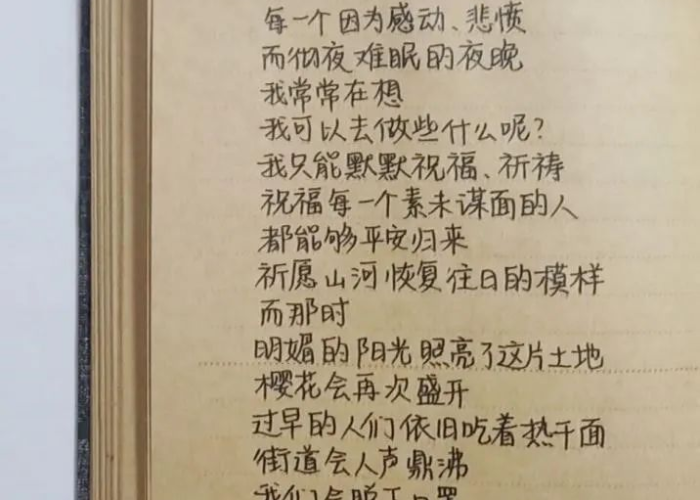 每一个因为感动、悲愤
而彻夜难眠的夜晚
我常常在想
我可以去做些什么呢?
我只能默默祝福、祈祷
祝福每一个素未谋面的人
都能够平安归来
祈愿山河恢复往日的模样
而那时
明媚的阳光照亮了这片土地
樱花会再次盛开
过早的人们依旧吃着热干面
街道会人声鼎沸
我们会脱下口罩